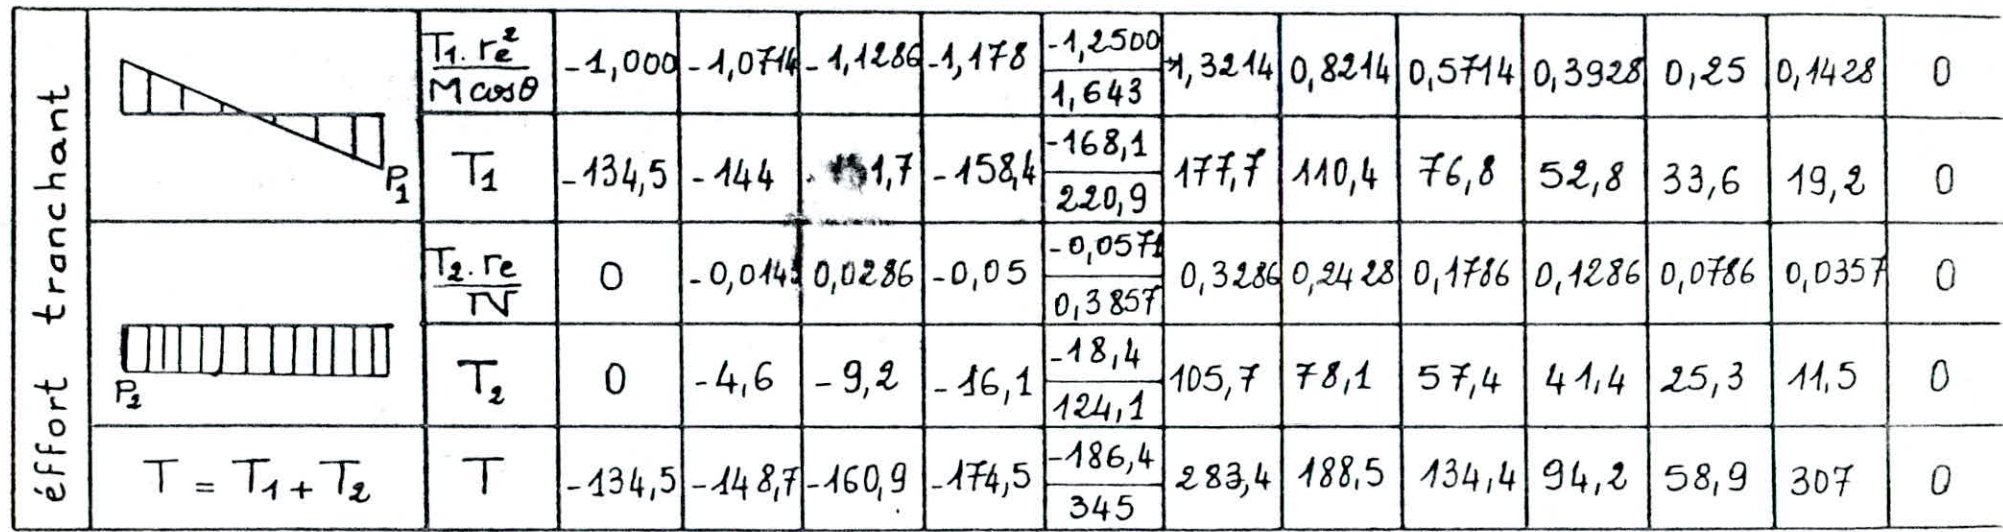 éffort tranchant
P1
T1. re² / M cosθ -1,000 -1,0714 -1,1286 -1,178 -1,2500 / 1,643 1,3214 0,8214 0,5714 0,3928 0,25 0,1428 0
T1 -134,5 -144 -158,4 -168,1 / 220,9 177,7 110,4 76,8 52,8 33,6 19,2 0
P2
T2. re / N 0 0,0286 -0,05 -0,0571 / 0,3857 0,3286 0,2428 0,1786 0,1286 0,0786 0,0357 0
T2 0 -4,6 -9,2 -16,1 -18,4 / 124,1 105,7 78,1 57,4 41,4 25,3 11,5 0
T = T1 + T2 T -134,5 -148,7 -160,9 -174,5 -186,4 / 345 283,4 188,5 134,4 94,2 58,9 307 0